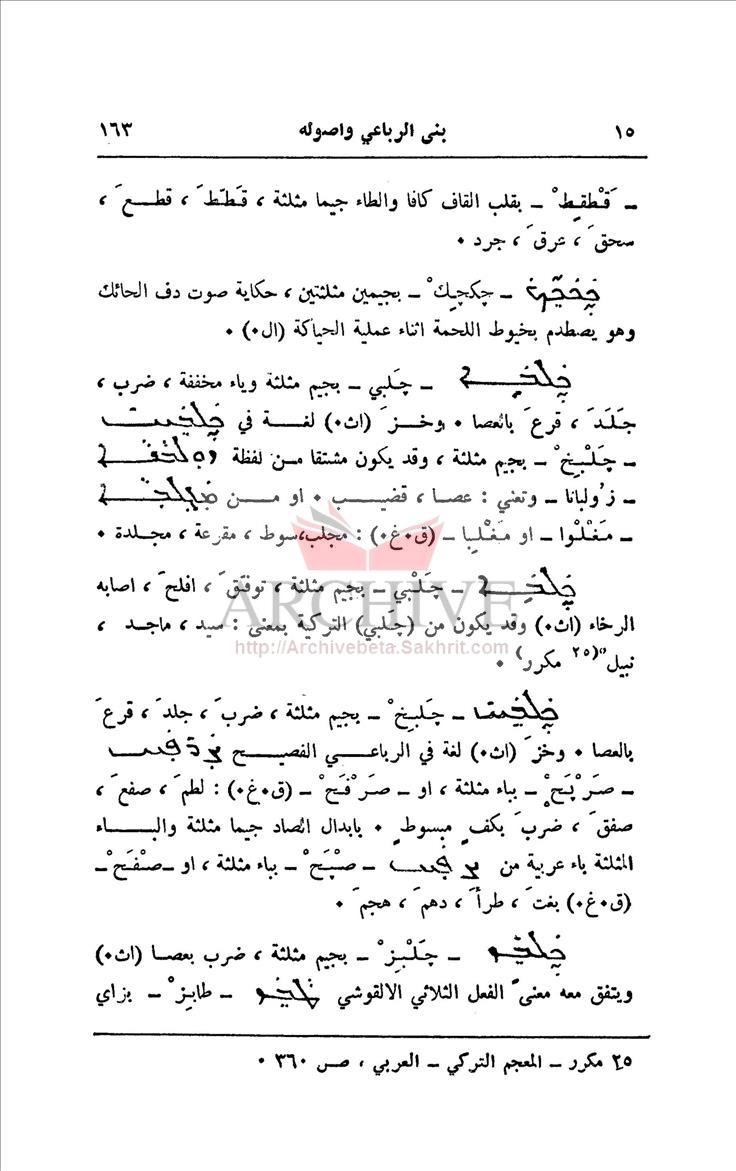 ١٥ بنى الرباعي واصوله ١٦٣
ـ قَطْقِطْ ـ بقلب القاف كافا والطاء جيما مثلثة ، قَطّطَ ، قطعَ ،
سحقَ ، عرقَ ، جرد ٠
ـ چكچِكْ ـ بجيمين مثلثتين ، حكاية صوت دف الحائك
وهو يصطدم بخيوط اللحمة اثناء عملية الحياكة (ال٠) ٠
ـ چَلبي ـ بجيم مثلثة وياء مخففة ، ضرب ،
جَلَدَ ، قرعَ بالعصا ٠ وخزَ (اث٠) لغة في
ـ چَلْبِخْ ـ بجيم مثلثة ، وقد يكون مشتقا من لفظة
ـ زُولبانا ـ وتعني : عصا ، قضيب ٠ او من
ـ مَغْلْوا ـ او مَغْلْبا ـ (ق٠غ٠) : مجلب، سوط ، مقرعة ، مجلدة ٠
ـ چَلْبي ـ بجيم مثلثة ، توفّقَ ، افلحَ ، اصابه
الرخاء (اث٠) وقد يكون من (چَلبي) التركية بمعنى : سيد ، ماجد ،
نبيل"(٢٥ مكرر) ٠
ـ چَلبِخْ ـ بجيم مثلثة ، ضربَ ، جلدَ ، قرعَ
بالعصا ٠ وخزَ (اث٠) لغة في الرباعي الفصيح
ـ صَرْپَحْ ـ بباء مثلثة ، او ـ صَرْفَحْ ـ (ق٠غ٠) : لطمَ ، صفعَ ،
صفقَ ، ضربَ بكفٍ مبسوطٍ ٠ بابدال الصاد جيما مثلثة والباء
المثلثة باء عربية من ـ صْپَحْ ـ بباء مثلثة ، او ـ صْفَحْ ـ
(ق٠غ٠) بغتَ ، طرأَ ، دهمَ ، هجمَ ٠
ـ چَلْبِزْ ـ بجيم مثلثة ، ضرب بعصا (اث٠)
ويتفق معه معنىً الفعل الثلاثي الالقوشي ـ طابِزْ ـ بزاي
٢٥ مكرر ـ المعجم التركي ـ العربي ، ص ٣٦٠ ٠
ARCHIVE
http://Archivebeta.Sakhrit.com